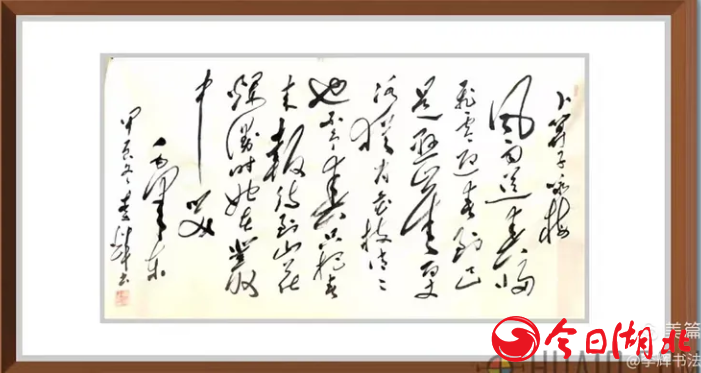 卜算子咏梅
风雨送春归
飞雪迎春到已
是悬崖百丈
冰犹有花枝俏々
也不争春只把春
来报待到山花
烂漫时她在丛
中笑
毛泽东
李辉书
美篇
今日湖北
@李辉书法